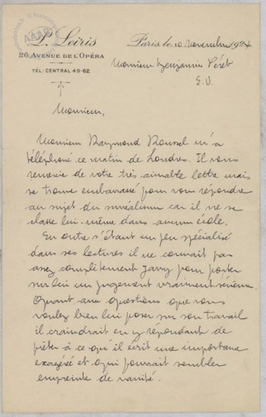 P. Leiris
26 AVENUE DE L'OPÉRA
TÉL: CENTRAL 49-62
Paris le 10 Novembre 1924
Monsieur Benjamin Péret
E. V.
Monsieur,
Monsieur Raymond Roussel m'a
téléphoné ce matin de Londres. Il vous
remercie de votre très aimable lettre mais
se trouve embarrassé pour vous répondre
au sujet du surréalisme car il ne se
classe lui-même dans aucune école.
En outre s'étant un peu spécialisé
dans ses lectures il ne connait pas
assez complètement Jarry pour porter
sur lui un jugement vraiment sérieux.
Quant aux questions que vous
voulez bien lui poser sur son travail
il craindrait en y répondant de
prêter à ce qu'il écrit une importance
exagérée et qui pourrait sembler
empreinte de vanité.